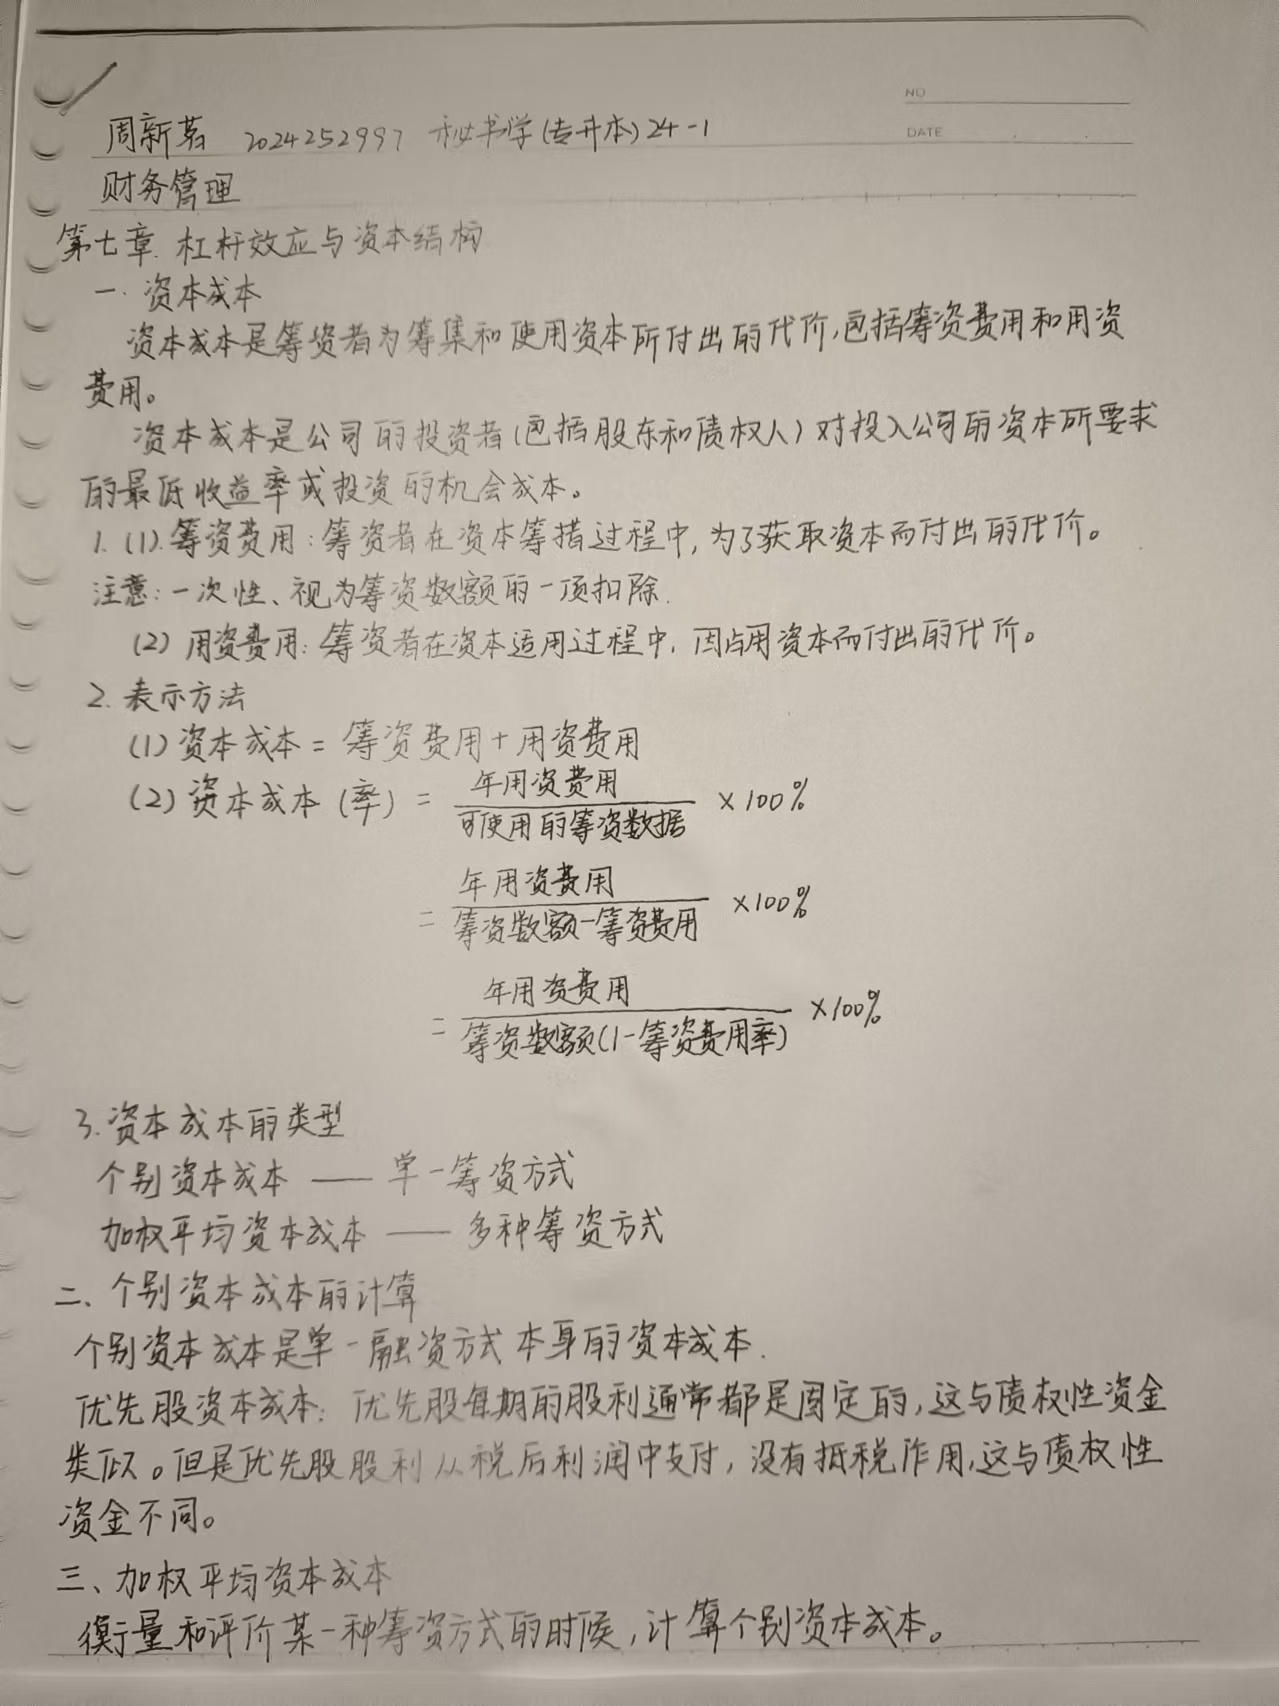 NO
DATE
周新茗 2024252997 秘书学(专升本)24-1
财务管理
第七章. 杠杆效应与资本结构
一. 资本成本
资本成本是筹资者为筹集和使用资本所付出的代价,包括筹资费用和用资
费用。
资本成本是公司的投资者(包括股东和债权人)对投入公司的资本所要求
的最低收益率或投资的机会成本。
1. (1). 筹资费用:筹资者在资本筹措过程中,为了获取资本而付出的代价。
注意:一次性、视为筹资数额的一项扣除.
(2) 用资费用:筹资者在资本适用过程中,因占用资本而付出的代价。
2. 表示方法
(1) 资本成本 = 筹资费用+用资费用
(2) 资本成本(率) = 年用资费用/可使用的筹资数据 ×100%
= 年用资费用/筹资数额-筹资费用 ×100%
= 年用资费用/筹资数额(1-筹资费用率) ×100%
3. 资本成本的类型
个别资本成本 —— 单一筹资方式
加权平均资本成本 —— 多种筹资方式
二、个别资本成本的计算
个别资本成本是单一融资方式本身的资本成本.
优先股资本成本:优先股每期的股利通常都是固定的,这与债权性资金
类似。但是优先股股利从税后利润中支付,没有抵税作用,这与债权性
资金不同。
三、加权平均资本成本
衡量和评价某一种筹资方式的时候,计算个别资本成本。